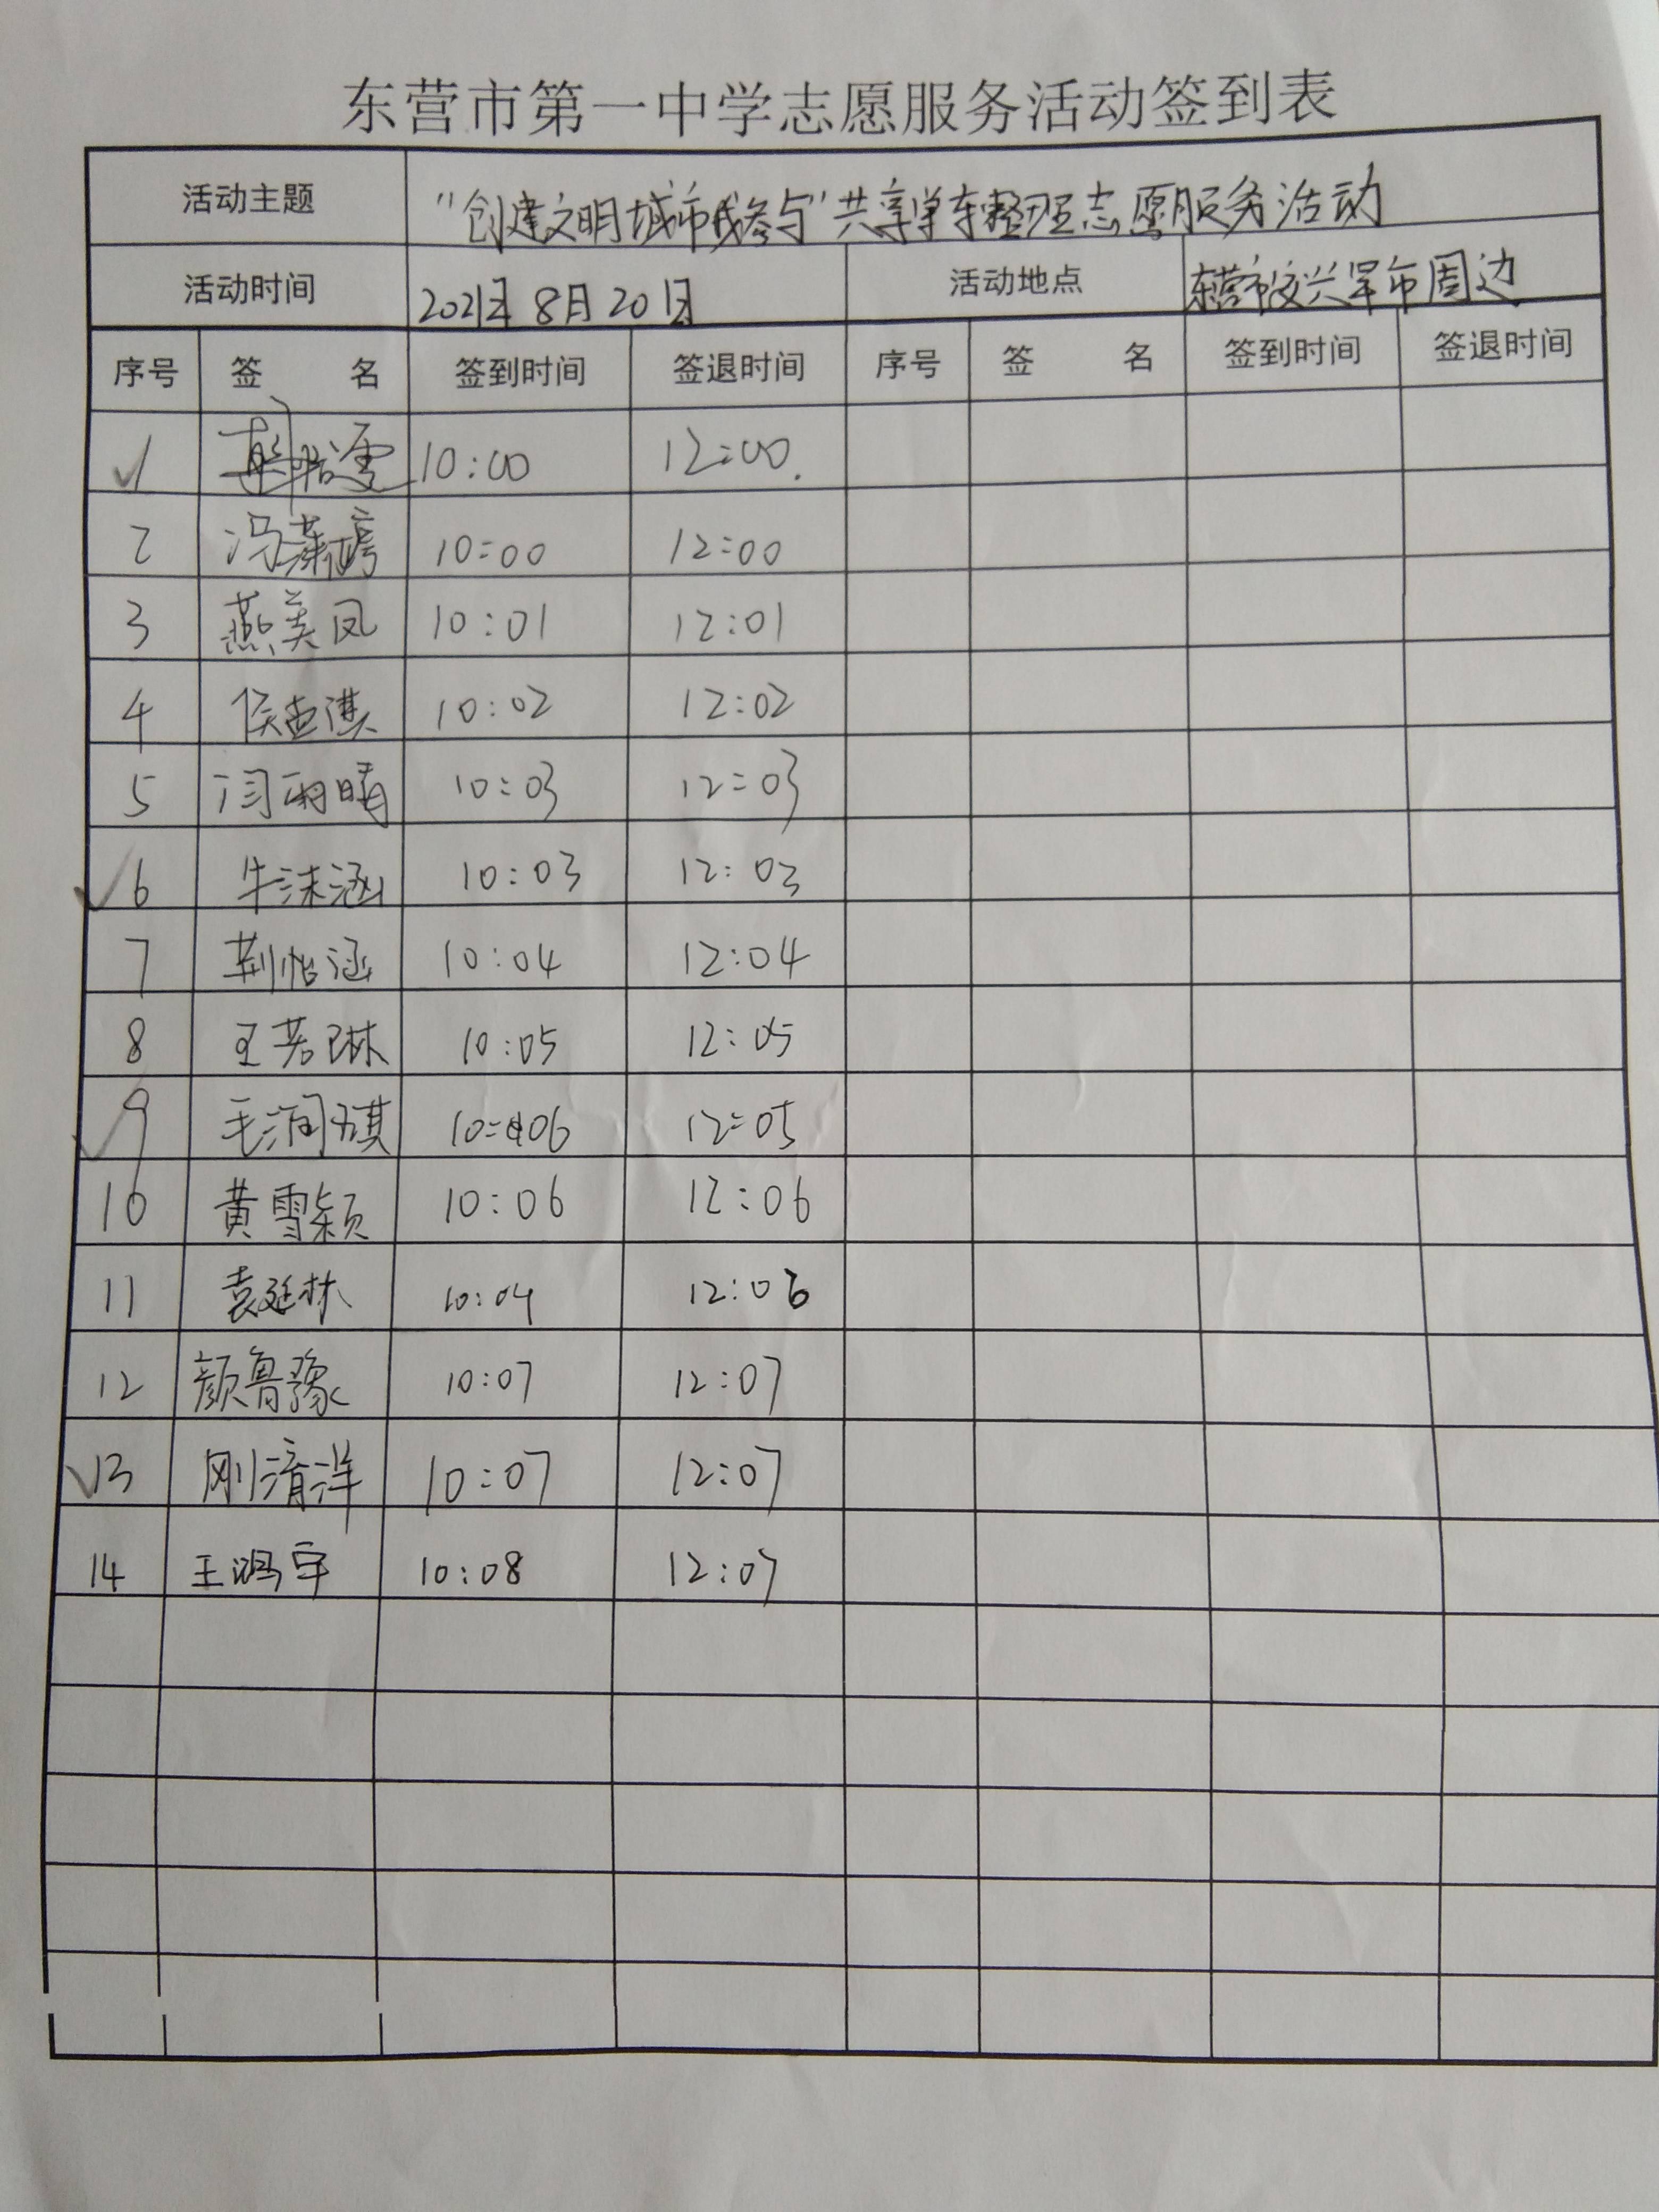 东营市第一中学志愿服务活动签到表
活动主题 "创建文明城市我参与"共享单车整理志愿服务活动
活动时间 2021年8月20日 活动地点 东营市文兴早市周边
序号 签 名 签到时间 签退时间 序号 签 名 签到时间 签退时间
1 10:00 12:00.
2 冯 10:00 12:00
3 燕美凤 10:01 12:01
4 侯孟淇 10:02 12:02
5 闫雨晴 10:03 12:03
6 牛沫涵 10:03 12:03
7 荆怡涵 10:04 12:04
8 王若琳 10:05 12:05
9 毛润琪 10:06 12:05
10 黄雪颖 10:06 12:06
11 袁延林 10:04 12:06
12 颜鲁豫 10:07 12:07
13 刚清洋 10:07 12:07
14 王鸿宇 10:08 12:07